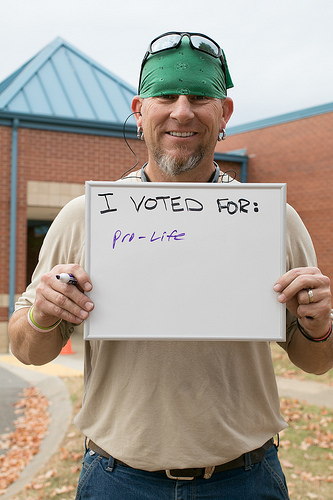 I VOTED FOR:
Pro-Life